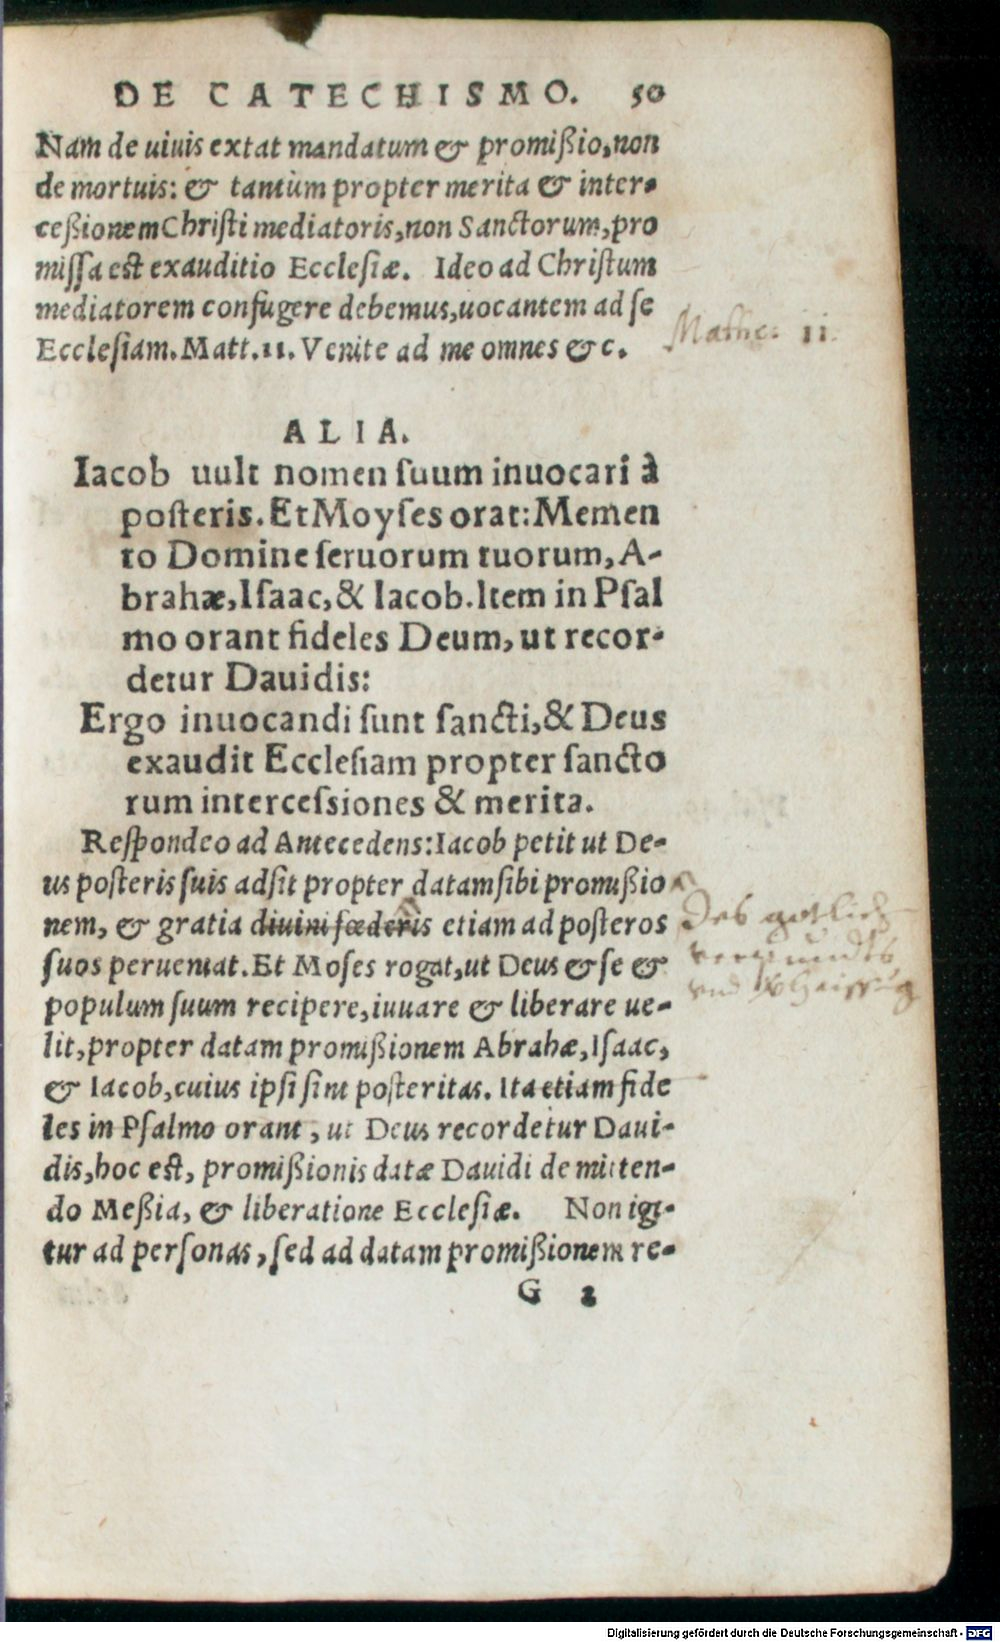 DE CATECHISMO. 50
Nam de uiuis extat mandatum & promißio, non
de mortuis: & tantùm propter merita & inter-
ceßionem Christi mediatoris, non Sanctorum, pro
missa est exauditio Ecclesiæ. Ideo ad Christum
mediatorem confugere debemus, uocantem ad se
Ecclesiam. Matt. 11. Venite ad me omnes &c.
Mathe: 11.
ALIA.
Iacob uult nomen suum inuocari à
posteris. Et Moyses orat: Memen
to Domine seruorum tuorum, A-
brahæ, Isaac, & Iacob. Item in Psal
mo orant fideles Deum, ut recor-
detur Dauidis:
Ergo inuocandi sunt sancti, & Deus
exaudit Ecclesiam propter sancto
rum intercessiones & merita.
Respondeo ad Antecedens: Iacob petit ut De-
us posteris suis adsit propter datam sibi promißio
nem, & gratia diuini fœderis etiam ad posteros
suos perueniat. Et Moses rogat, ut Deus & se &
populum suum recipere, iuuare & liberare ue-
lit, propter datam promißionem Abrahæ, Isaac,
& Iacob, cuius ipsi sint posteritas. Ita etiam fide
les in Psalmo orant, ut Deus recordetur Daui-
dis, hoc est, promißionis datæ Dauidi de mitten-
do Meßia, & liberatione Ecclesiæ. Non igi-
tur ad personas, sed ad datam promißionem re-
G 2
Des
vnd
Digitalisierung gefördert durch die Deutsche Forschungsgemeinschaft - DFG